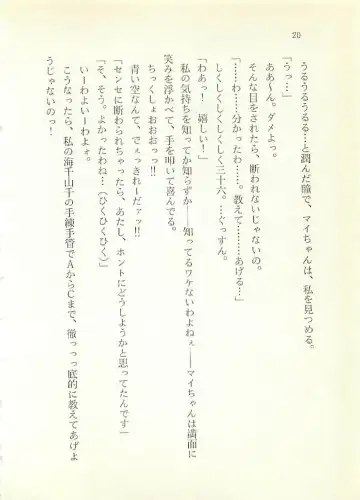 20
うるうるうるる…と潤んだ瞳で、マイちゃんは、私を見つめる。
「うっ…」
ああ〜ん。ダメよっ。
そんな目をされたら、断われないじゃないの。
「………わ……分かったわ……。教えて……あげる…」
しくしくしくしくしく三十六。…ぐっすん。
「わあっ！　嬉しい！」
私の気持ちを知ってか知らずか――知ってるワケないわよねぇ――マイちゃんは満面に
笑みを浮かべて、手を叩いて喜んでる。
ちっくしょおおおっっ!!
青い空なんて、でぇっきれーだァッ!!
「センセに断わられちゃったら、あたし、ホントにどうしようかと思ってたんです」
「そう。そう。よかったわね…（ひくひくひく）」
いーわよいーわよォ。
こうなったら、私の海千山千の手練手管でAからCまで、徹っっっ底的に教えてあげよ
うじゃないのっ！